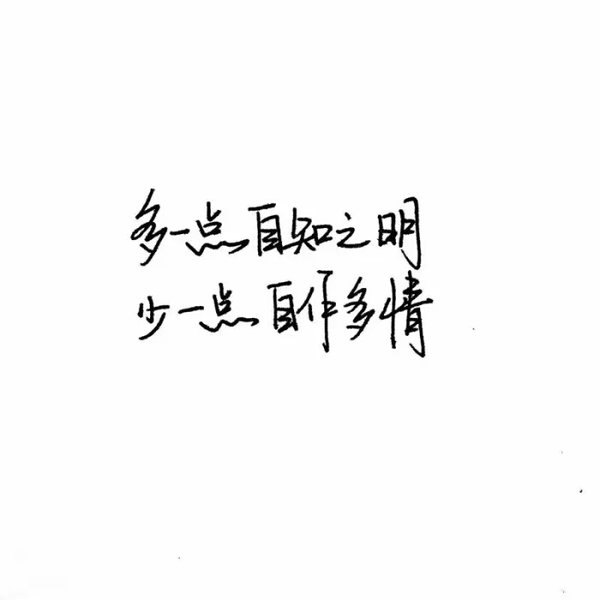 多一点自知之明
少一点自作多情